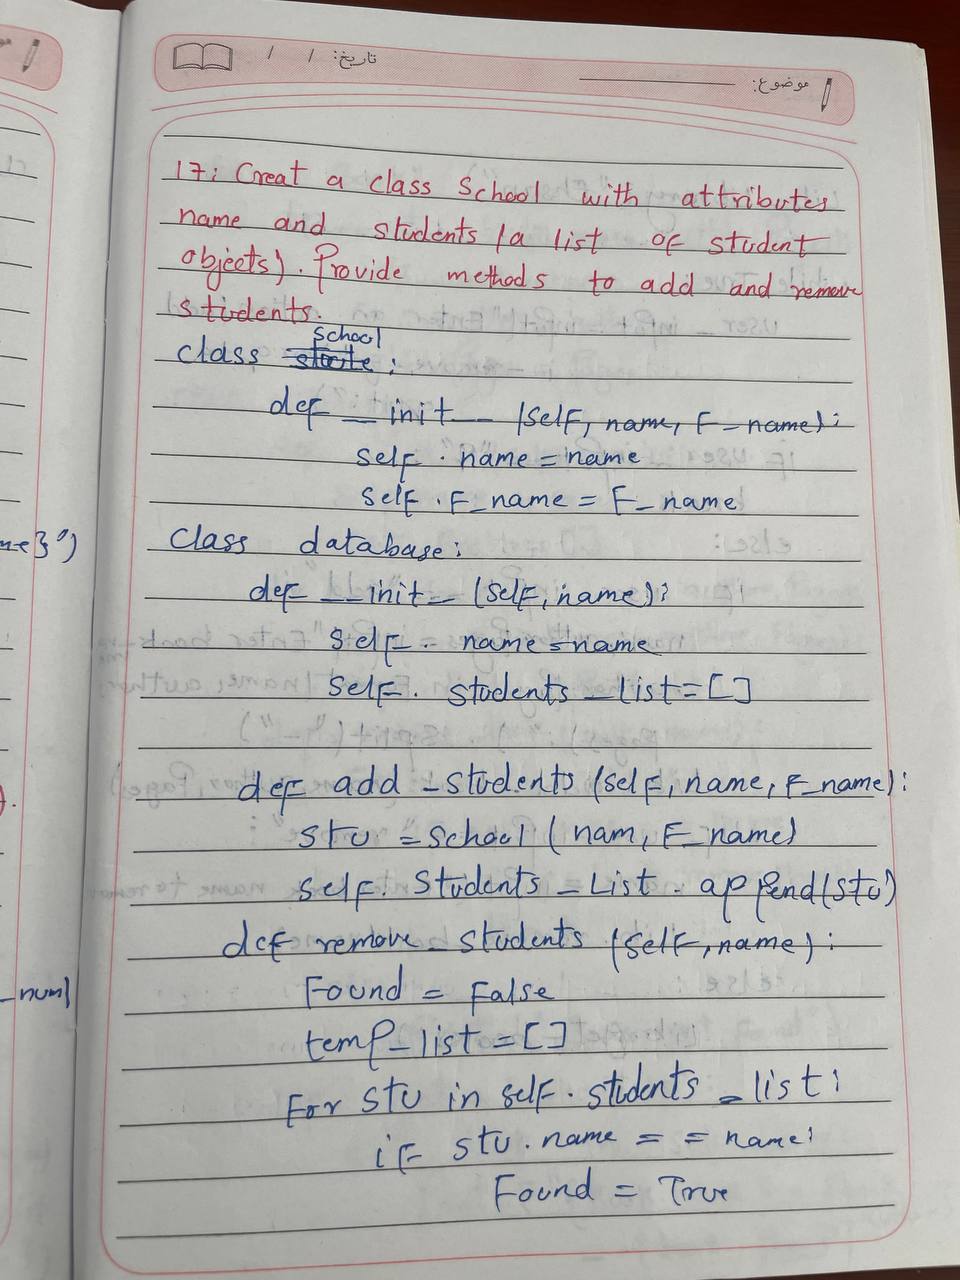 موضوع: تاریخ: / /
17: Creat a class School with attributes
name and students (a list of student
objects). Provide methods to add and remove
students.
School
class :
def __init__ (self, name, F_name):
self.name = name
self.F_name = F_name
Class database:
def __init__ (self, name):
self.name = name
self.students_list = []
def add_students (self, name, F_name):
stu = school (nam, F_name)
self.students_List.append(stu)
def remove_students (self, name):
Found = False
temp_list = []
For stu in self.students_list:
if stu.name == name:
Found = True
me}")
).
_num)